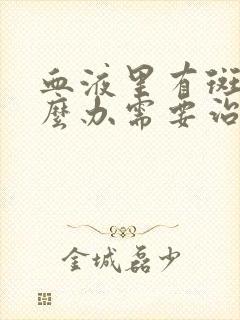 血液里有斑
麼办需要治
金城磊少